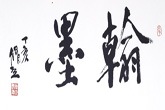 翰墨
丁亥